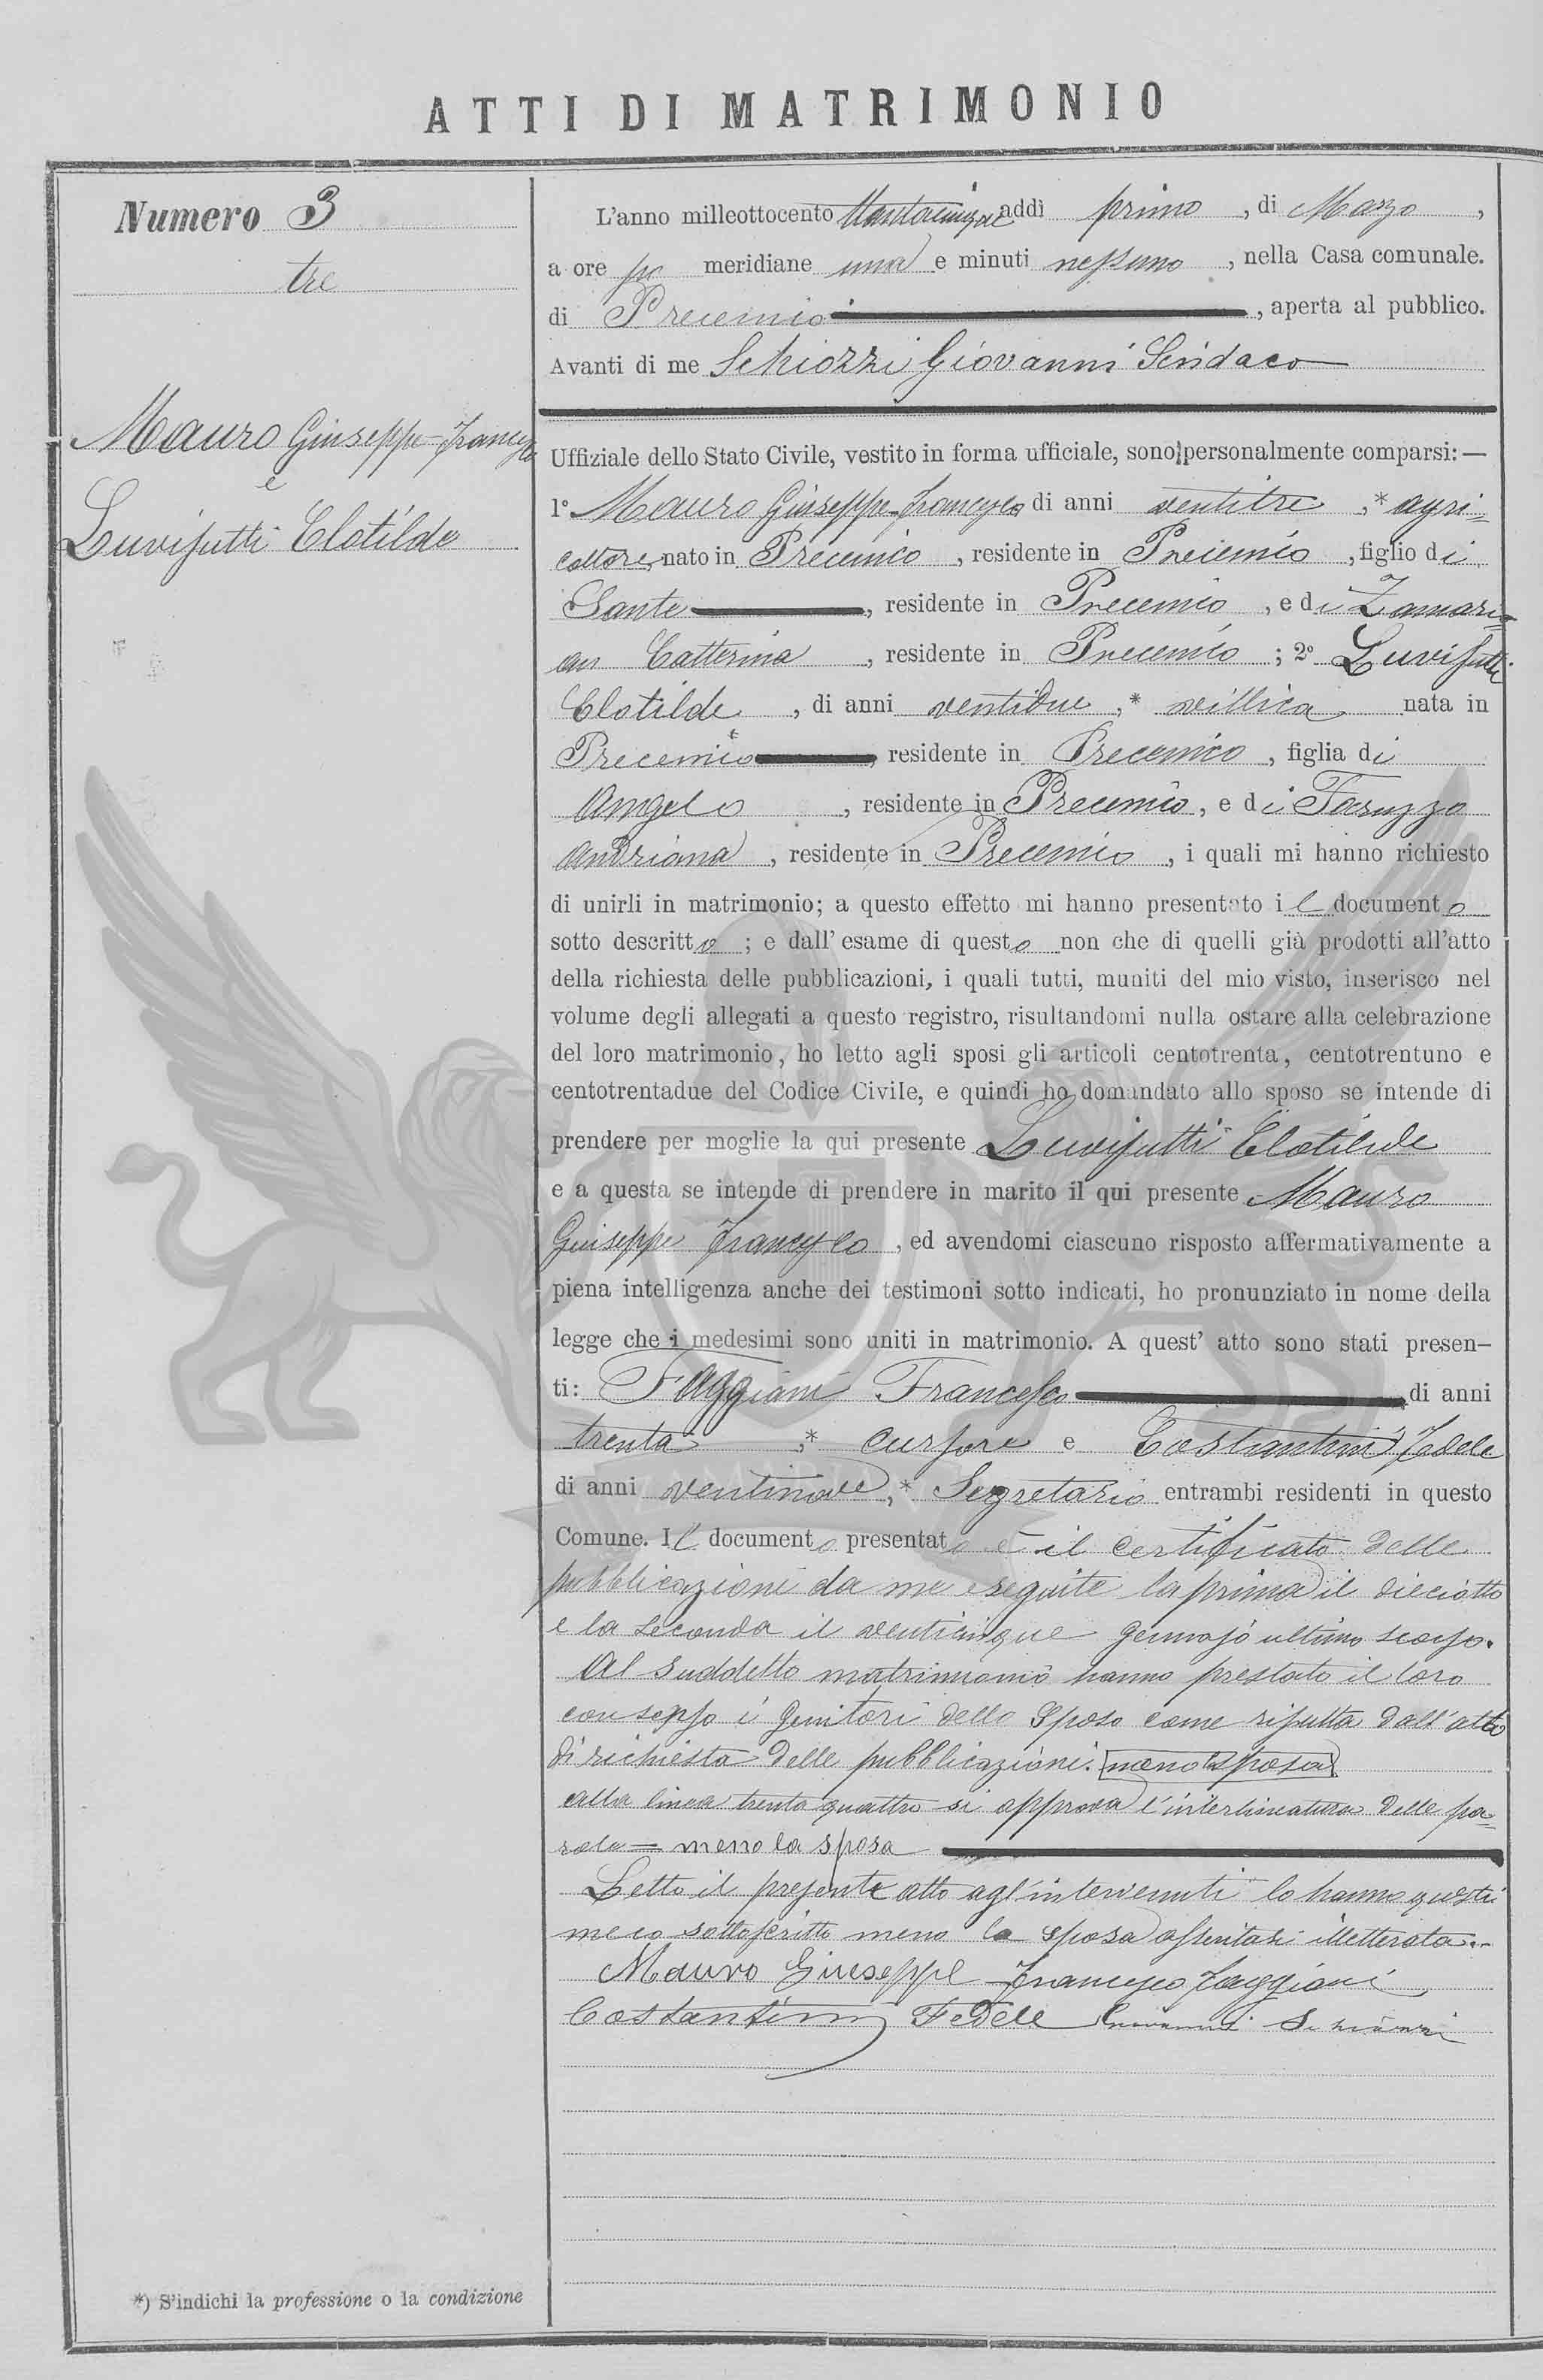 ATTI DI MATRIMONIO
Numero 3
tre
Mauro Giuseppe-Francesco
e
Luvisutti Clotilde
L'anno milleottocento addì primo, di Marzo,
a ore po meridiane una e minuti nessuno, nella Casa comunale.
di Precenico, aperta al pubblico.
Avanti di me Schiozzi Giovanni Sindaco
Uffiziale dello Stato Civile, vestito in forma ufficiale, sono personalmente comparsi:—
1º Mauro Giuseppe-Francesco di anni ventitre,* agri=
coltore, nato in Precenico, residente in Precenico, figlio di
Sante, residente in Precenico, e di Zamari=
an Catterina, residente in Precenico; 2º Luvisutti
Clotilde, di anni ventidue,* villica nata in
Precenico, residente in Precenico, figlia di
Angelo, residente in Precenico, e di Faruzzo
Andriana, residente in Precenico, i quali mi hanno richiesto
di unirli in matrimonio; a questo effetto mi hanno presentato il documento
sotto descritto; e dall' esame di questo non che di quelli già prodotti all'atto
della richiesta delle pubblicazioni, i quali tutti, muniti del mio visto, inserisco nel
volume degli allegati a questo registro, risultandomi nulla ostare alla celebrazione
del loro matrimonio, ho letto agli sposi gli articoli centotrenta, centotrentuno e
centotrentadue del Codice Civile, e quindi ho domandato allo sposo se intende di
prendere per moglie la qui presente Luvisutti Clotilde
e a questa se intende di prendere in marito il qui presente Mauro
Giuseppe Francesco, ed avendomi ciascuno risposto affermativamente a
piena intelligenza anche dei testimoni sotto indicati, ho pronunziato in nome della
legge che i medesimi sono uniti in matrimonio. A quest' atto sono stati presen–
ti: Faggiani Francesco di anni
trenta,* cursore e Costantini Fedele
di anni ventinove,* Segretario entrambi residenti in questo
Comune. Il documento presentato è il certificato delle
pubblicazioni da me eseguite la prima il dieciotto
e la seconda il venticinque gennajo ultimo scorso.
Al suddetto matrimonio hanno prestato il loro
consenso i genitori dello sposo come risulta dall'atto
di richiesta delle pubblicazioni. meno la sposa
alla linea trenta quattro si approva l'interlineatura delle pa=
role = meno la sposa
Letto il presente atto agl'intervenuti lo hanno questi
meco sottoscritto meno la sposa illetterata.
Mauro Giuseppe Francesco Faggiani
Costantini Fedele Giovanni Schiozzi
*) S'indichi la professione o la condizione